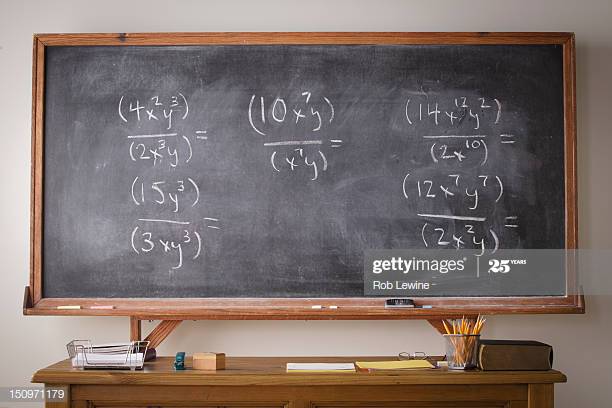 (4x²y³)
(2x³y) =
(15y³)
(3xy³) =
(10x⁷y)
(x⁷y) =
(14x¹²y²)
(2x¹⁰) =
(12x⁷y⁷)
(2x²y) =
gettyimages®
25 YEARS
Rob Lewine
150971179